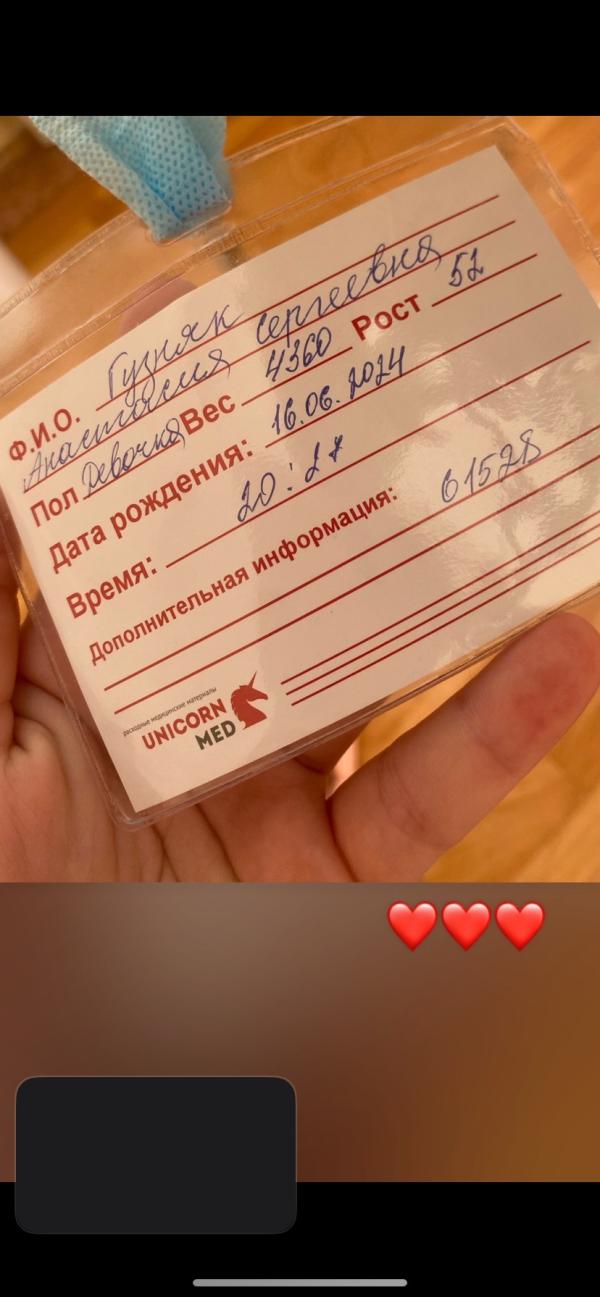 Ф.И.О. Гузняк
Анастасия Сергеевна
Пол Девочка Вес 4360 Рост 52
Дата рождения: 16.06.2024
Время: 20:27
Дополнительная информация: 61528
расходные медицинские материалы
UNICORN
MED